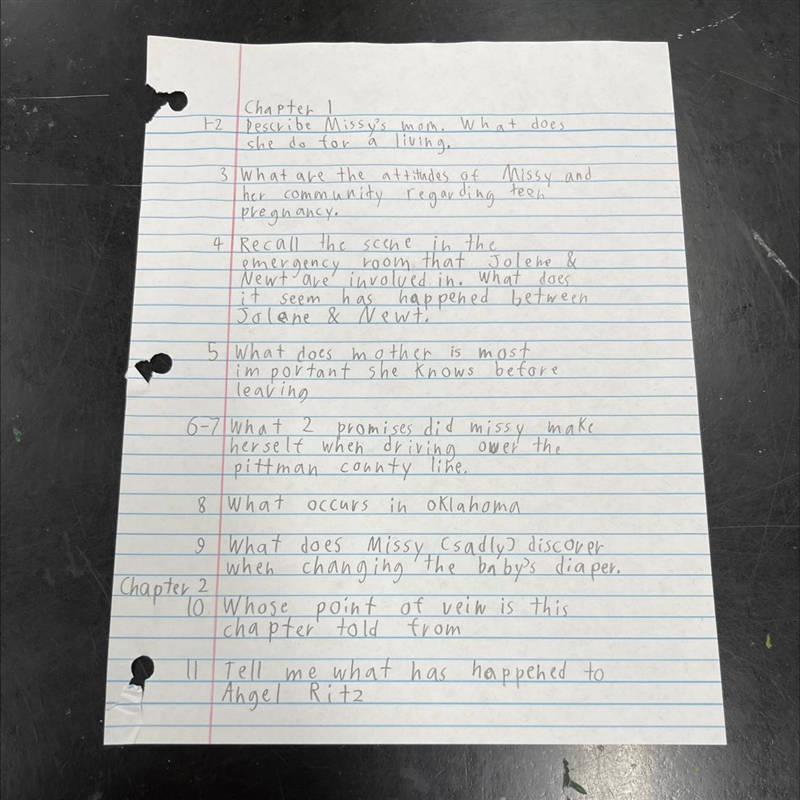 Chapter 1
1-2 Describe Missy's mom. What does
she do for a living.
3 What are the attitudes of Missy and
her community regarding teen
pregnancy.
4 Recall the scene in the
emergency room that Jolene &
Newt are involved in. What does
it seem has happened between
Jolene & Newt.
5 What does mother is most
important she knows before
leaving
6-7 What 2 promises did missy make
herself when driving over the
pittman county line.
8 What occurs in oklahoma
9 What does Missy (sadly) discover
when changing the baby's diaper.
Chapter 2
10 Whose point of veiw is this
chapter told from
11 Tell me what has happened to
Angel Ritz